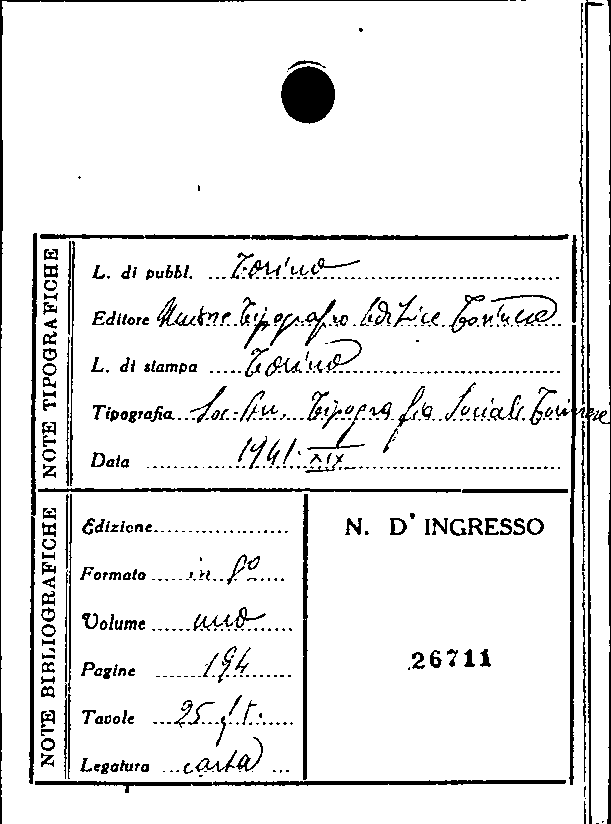 NOTE TIPOGRAFICHE
L. di pubbl. Torino
Editore Unione Tipografro Editrice Torinese
L. di stampa Torino
Tipografia Soc. An. Tipografia Sociale Torinese
Data 1941. XIX
NOTE BIBLIOGRAFICHE
Edizione
Formato in 8º
Volume uno
Pagine 194
Tavole 25 f.t.
Legatura carta
N. D' INGRESSO
26711